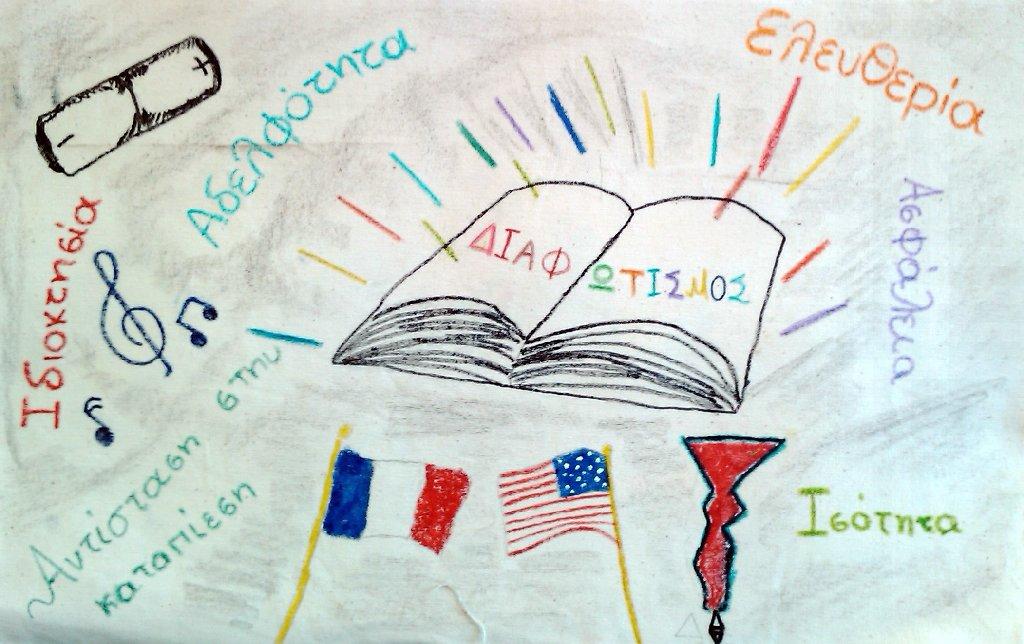 Ελευθερία
Αδελφότητα
ΔΙΑΦ
ΩΤΙΣΜΟΣ
Ασφάλεια
Ιδιοκτησία
Αντίσταση στην
καταπίεση
Ισότητα